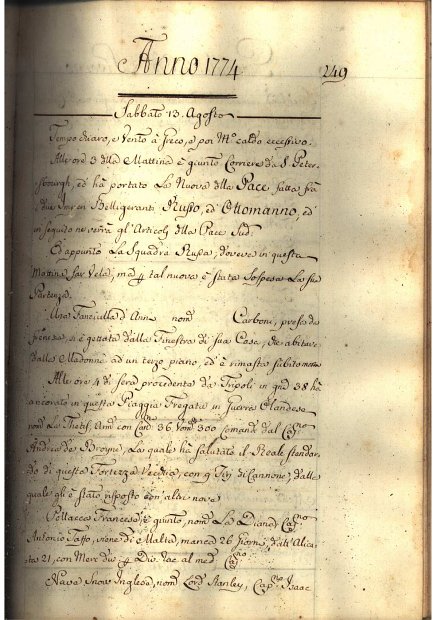 Anno 1774
249
Sabbato 13. Agosto
Tempo chiaro, e Vento à Greco, e poi M.º caldo eccessivo.
Alle ore 3 della Mattina è giunto Corriere da S. Peter-
sbourgh, ed hà portato La Nuova della Pace fatta frà
i due Imperi Belligeranti Russo, ed Ottomanno, ed
in seguito ne verrà gl' Articoli della Pace Sud.
Ed appunto La Squadra Russa, doveva in questa
Mattina far Vela, mà tal nuova è stata Sospesa La sua
Partenza.
Una Fanciulla d'Anni nom.ª Carboni, presa da
frenesia, si è gettata dalla Finestra di sua Casa, che abitava
dalla Madonna ad un terzo piano, ed è rimasta subito morta
Alle ore 4 di sera procidente da Tripoli in gni 38 hà
ancorato in questa Piaggia Fregata in Guerra Olandese
nom. La Thetis, Am. con Can. 36 Uom. 300 comand. dal Cap.no
Andrea de Broyne, La quale hà salutato il Reale stendar-
do di questa Fortezza Vecchia, con 9 Tiri di Cannone, dalla
quale gli è stato risposto con altre nove
Pollacca Francese, è giunto, nom. La Diana Cap.no
Antonio Taffo, viene di Malta, manca 26 Giorni, e di Alica-
ta 21, con Merc. div. Div. Rac. al med. Cap.no
Nava Snow Inglese, nom. Lord Stanley, Cap.no Isaac